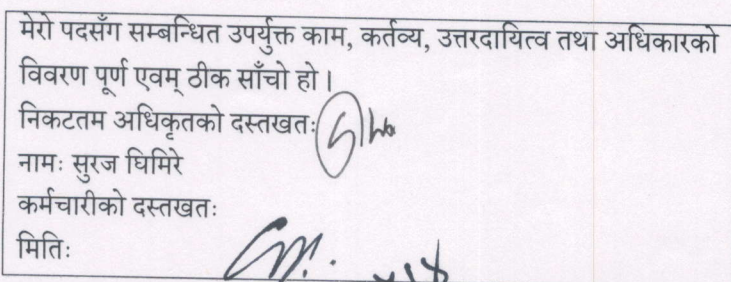 मेरो पदसँग सम्बन्धित उपर्युक्त काम, कर्तव्य, उत्तरदायित्व तथा अधिकारको
विवरण पूर्ण एवम् ठीक साँचो हो ।
निकटतम अधिकृतको दस्तखतः
नामः सुरज घिमिरे
कर्मचारीको दस्तखतः
मितिः